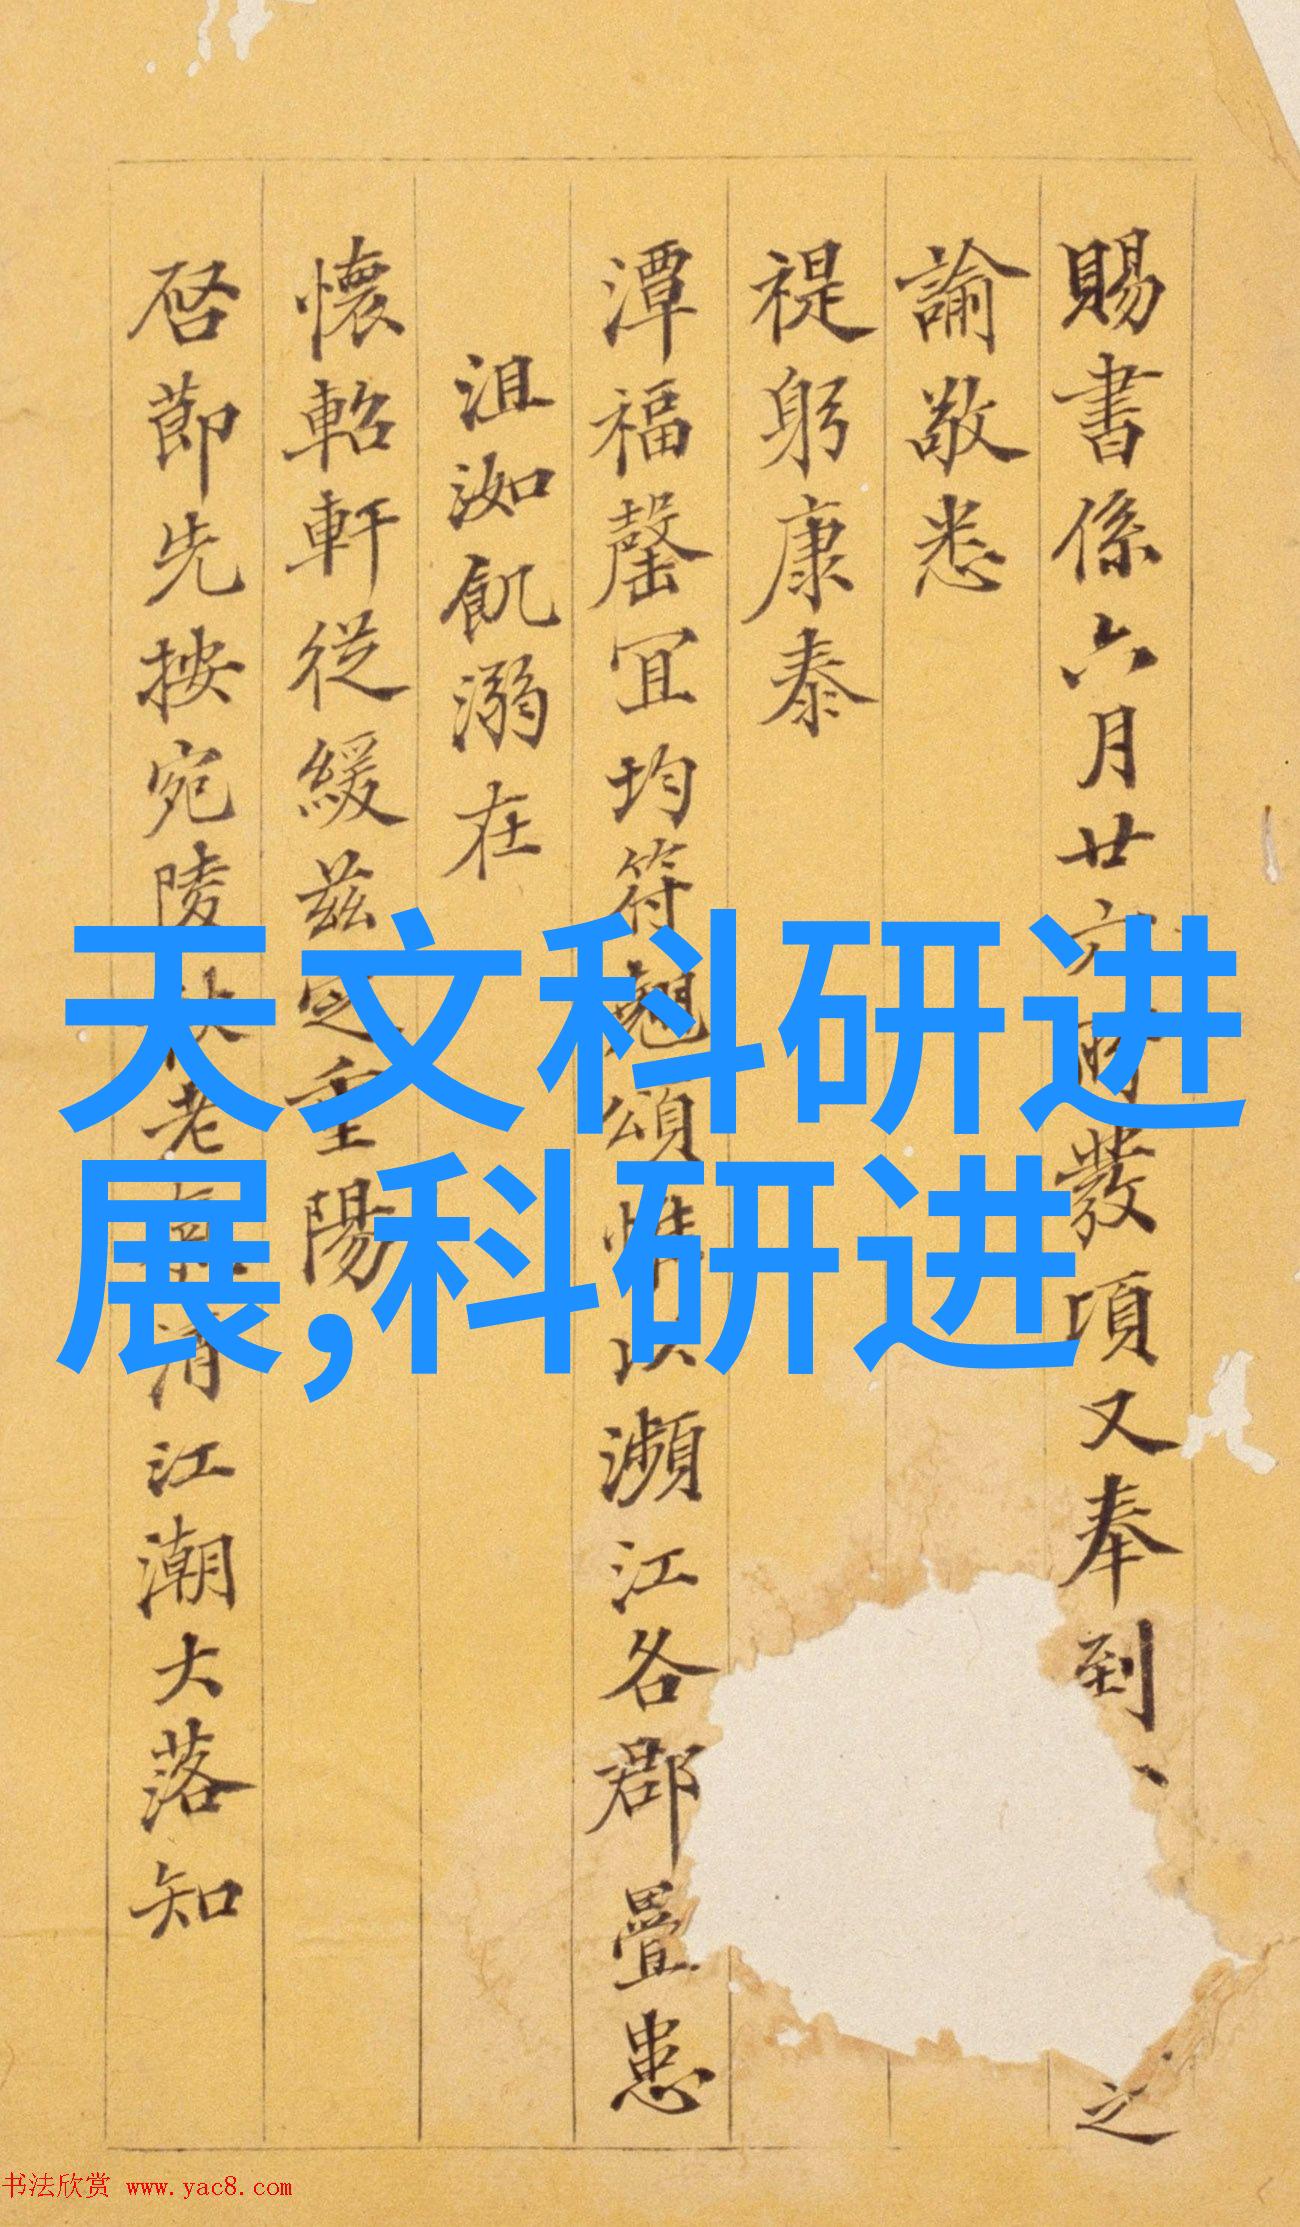 賜書係六月廿六日所發項又奉到、之
諭敬悉
禔躬康泰
潭福罄宜均符翹頌惟以瀕江各郡疊患
沮洳飢溺在
懷軺軒從緩茲定重陽
啓節先按宛陵秋老清江潮大落知
天文科研进
展,科研进
书法欣赏 www.yac8.com